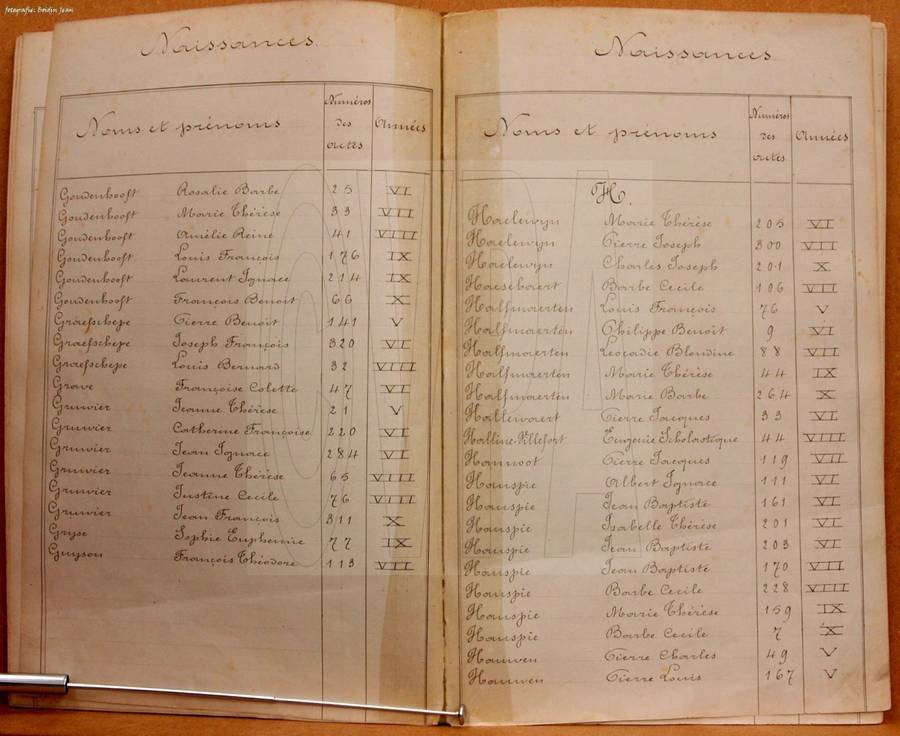 fotografie: Boidin Jean
Naissances.
Noms et prénoms
Numéros des actes
Années
Goudenhooft Rosalie Barbe 25 VI
Goudenhooft Marie Thérèse 33 VII
Goudenhooft Amélie Reine 41 VIII
Goudenhooft Louis François 176 IX
Goudenhooft Laurent Ignace 214 IX
Goudenhooft François Benoit 66 X
Graefschepe Pierre Benoit 141 V
Graefschepe Joseph François 320 VI
Graefschepe Louis Bernard 32 VIII
Grave Françoise Colette 47 VI
Gruwier Jeanne Thérèse 21 V
Gruwier Catherine Françoise 220 VI
Gruwier Jean Ignace 284 VI
Gruwier Jeanne Thérèse 65 VIII
Gruwier Justine Cecile 76 VIII
Gruwier Jean François 311 X
Gryse Sophie Euphemie 77 IX
Guyson François Théodore 113 VII
Naissances
Noms et prénoms
Numéros des actes
Années
H.
Haelewyn Marie Thérèse 205 VI
Haelewyn Pierre Joseph 300 VII
Haelewyn Charles Joseph 201 X
Haesebaert Barbe Cecile 106 VII
Halfmaerten Louis François 76 V
Halfmaerten Philippe Benoît 9 VI
Halfmaerten Leocadie Blondine 88 VII
Halfmaerten Marie Thérèse 44 IX
Halfmaerten Marie Barbe 264 X
Hallewaert Pierre Jacques 33 VI
Eugenie Scholastique 44 VIII
Hannoot Pierre Jacques 119 VII
Hauspie Albert Ignace 111 VI
Hauspie Jean Baptiste 161 VI
Hauspie Isabelle Thérèse 201 VI
Hauspie Jean Baptiste 203 VI
Hauspie Jean Baptiste 170 VII
Hauspie Barbe Cecile 228 VIII
Hauspie Marie Thérèse 159 IX
Hauspie Barbe Cecile 7 X
Hauwen Pierre Charles 49 V
Hauwen Pierre Louis 167 V